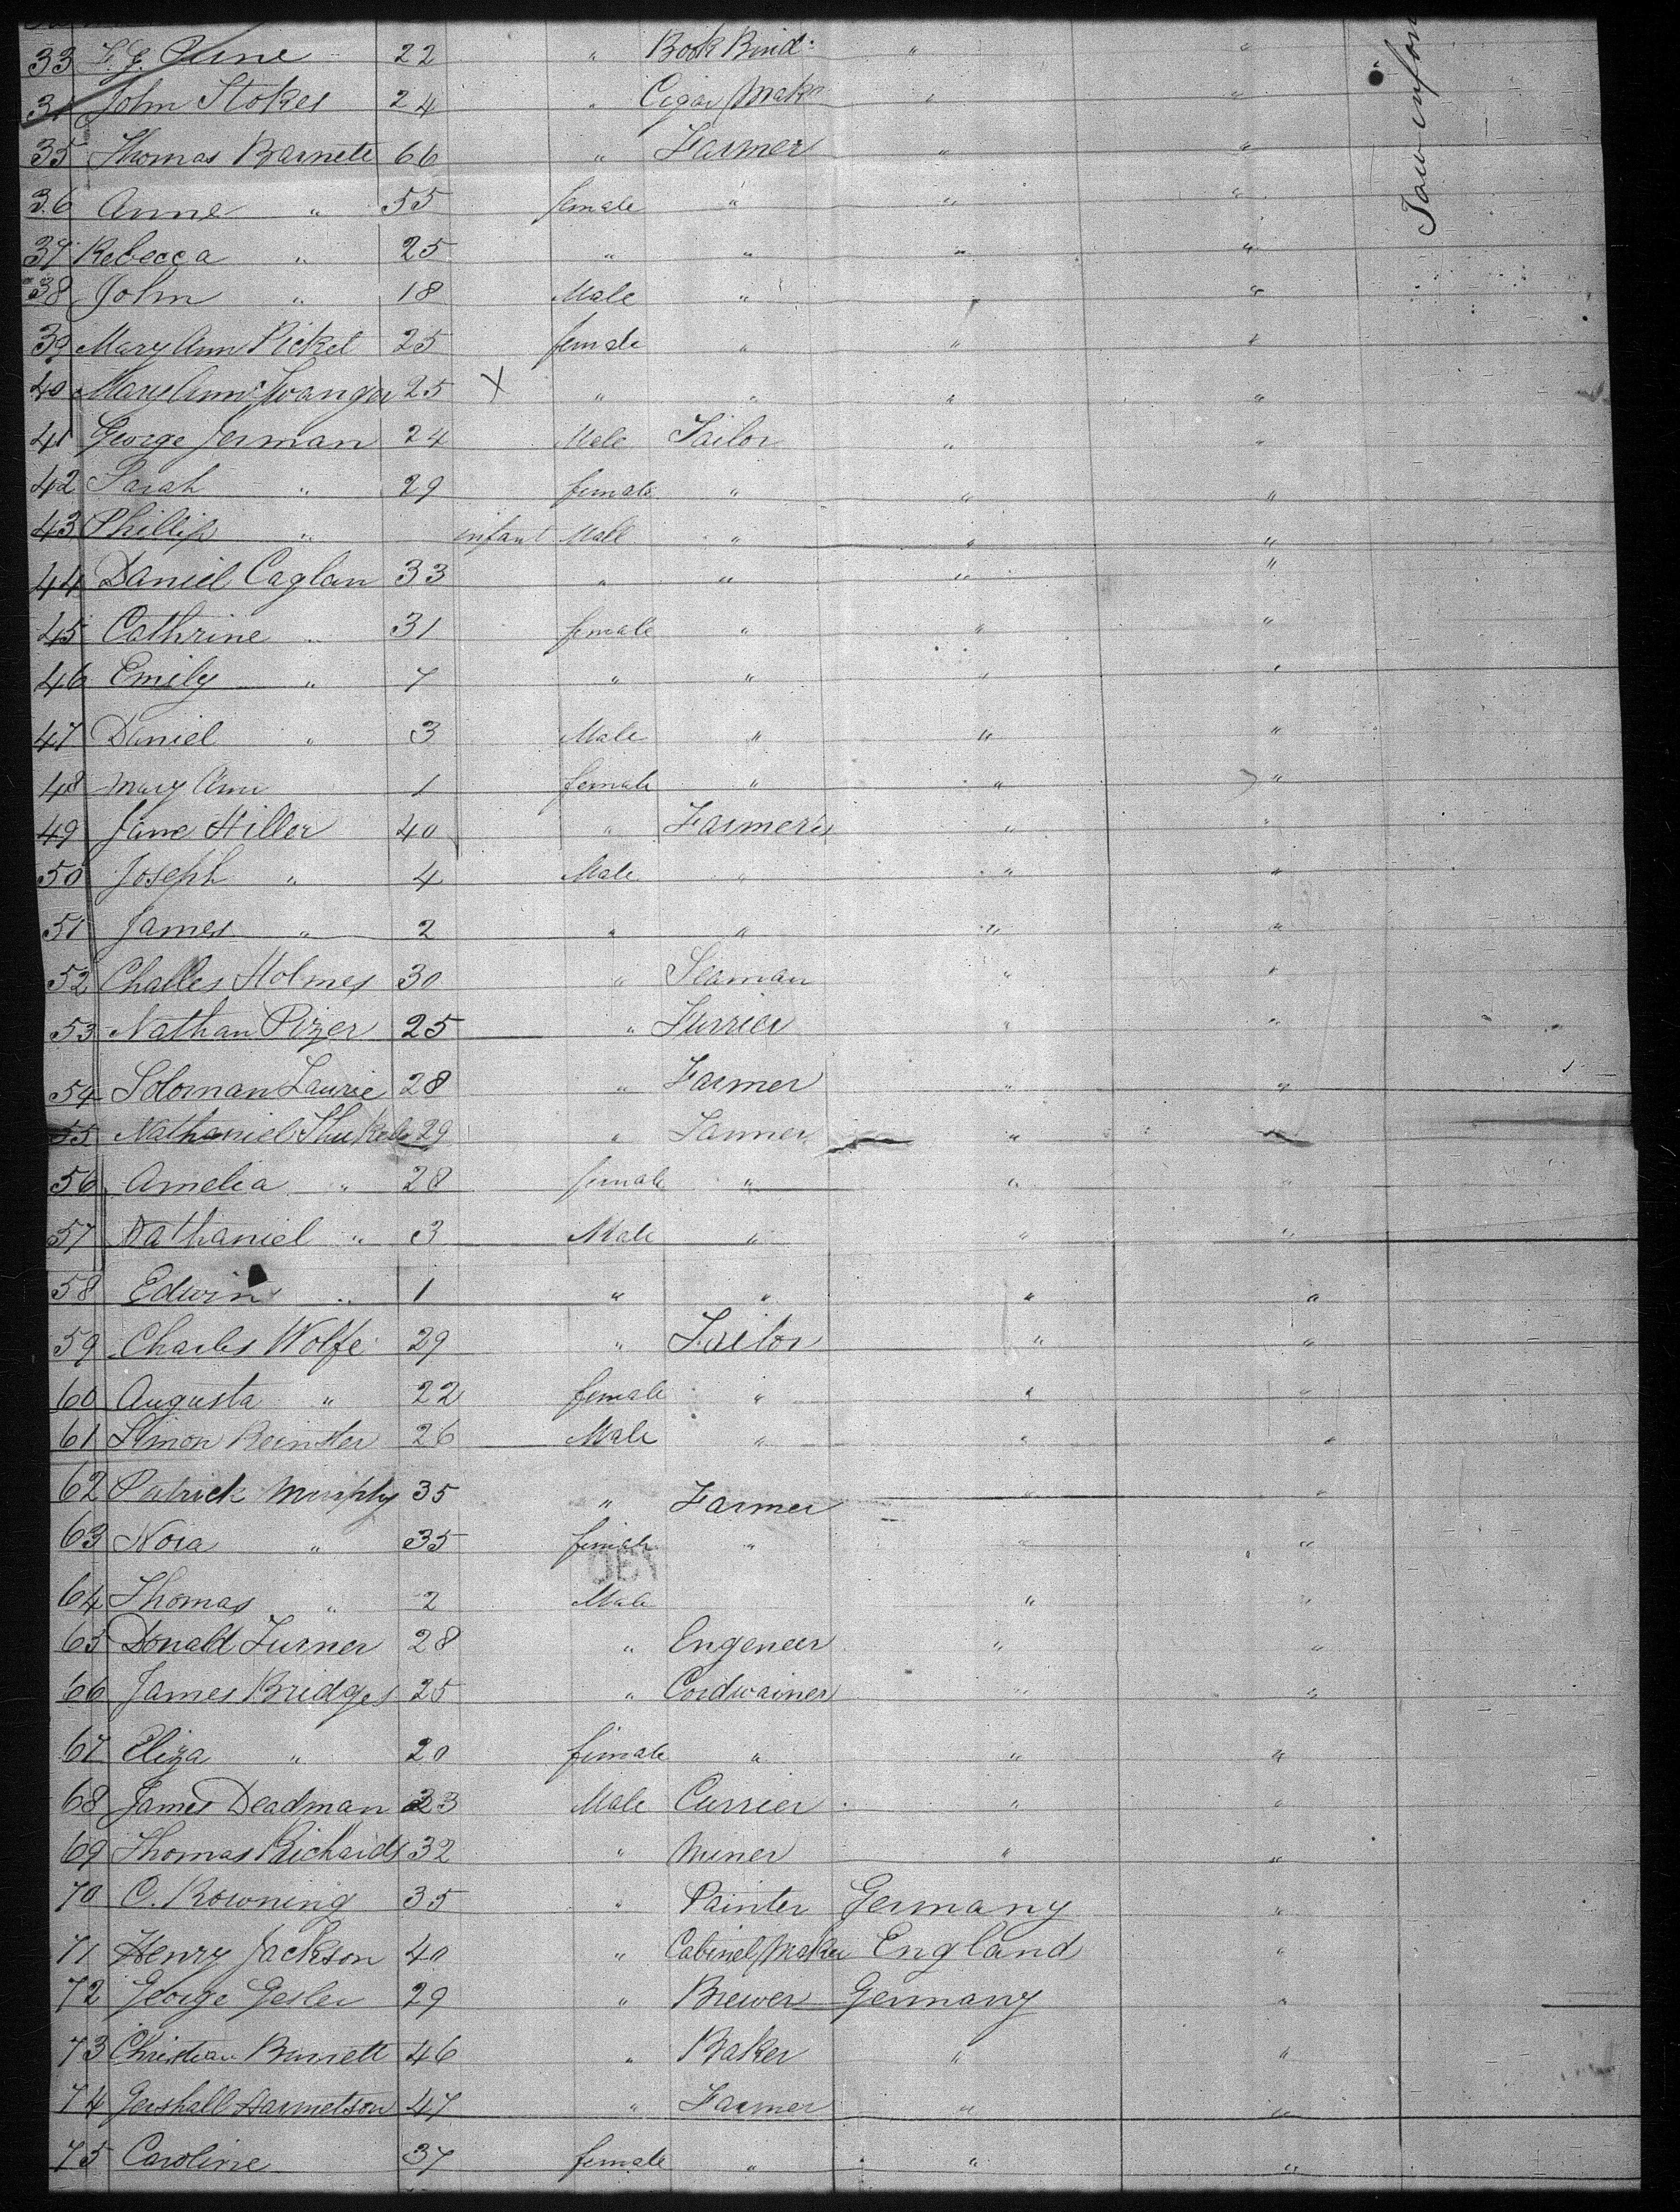 33 22 " Book Bind: " "
34 John Stokes 24 " Cigar Makr " "
35 Thomas Barnett 66 " Farmer " "
36 Anne " 55 female " " "
37 Rebecca " 25 " " " "
38 John " 18 Male " " "
39 Mary Ann Picket 25 female " " "
40 Mary Ann 25 X " " " "
41 George Jerman 24 Male Tailor " "
42 Sarah " 29 female " " "
43 Phillip " infant Male " " "
44 Daniel Caglan 33 " " " "
45 Cathrine " 31 female " " "
46 Emily " 7 " " " "
47 Daniel " 3 Male " " "
48 Mary Ann 1 female " " "
49 Jane Hiller 40 " Farmeris " "
50 Joseph " 4 Male " " "
51 James " 2 " " " "
52 Challes Holmes 30 " Seaman " "
53 Nathan Pizer 25 " Furrier " "
54 Soloman Laurie 28 " Farmer " "
55 Nathaniel 29 " " "
56 Amelia " 28 female " " "
57 Nathaniel " 3 Male " " "
58 Edwin " 1 " " " "
59 Charles Wolfe 29 " Tailor " "
60 Augusta " 22 female " " "
61 Simon 26 Male " " "
62 Patrick Murphy 35 " Farmer " "
63 Nora " 35 female " " "
64 Thomas " 2 Male " "
65 Donald Turner 28 " Engeneer " "
66 James Bridges 25 " Cordwainer " "
67 Eliza " 20 female " " "
68 James Deadman 23 Male Currier " "
69 Thomas Richards 32 " Miner " "
70 C. Rowning 35 " Painter Germany "
71 Henry Jackson 40 " Cabinet Maker England "
72 George Gesler 29 " Brewer Germany "
73 Christian Burrett 46 " Baker " "
74 Gershall Harmetson 47 " Farmer " "
75 Caroline 37 female " " "